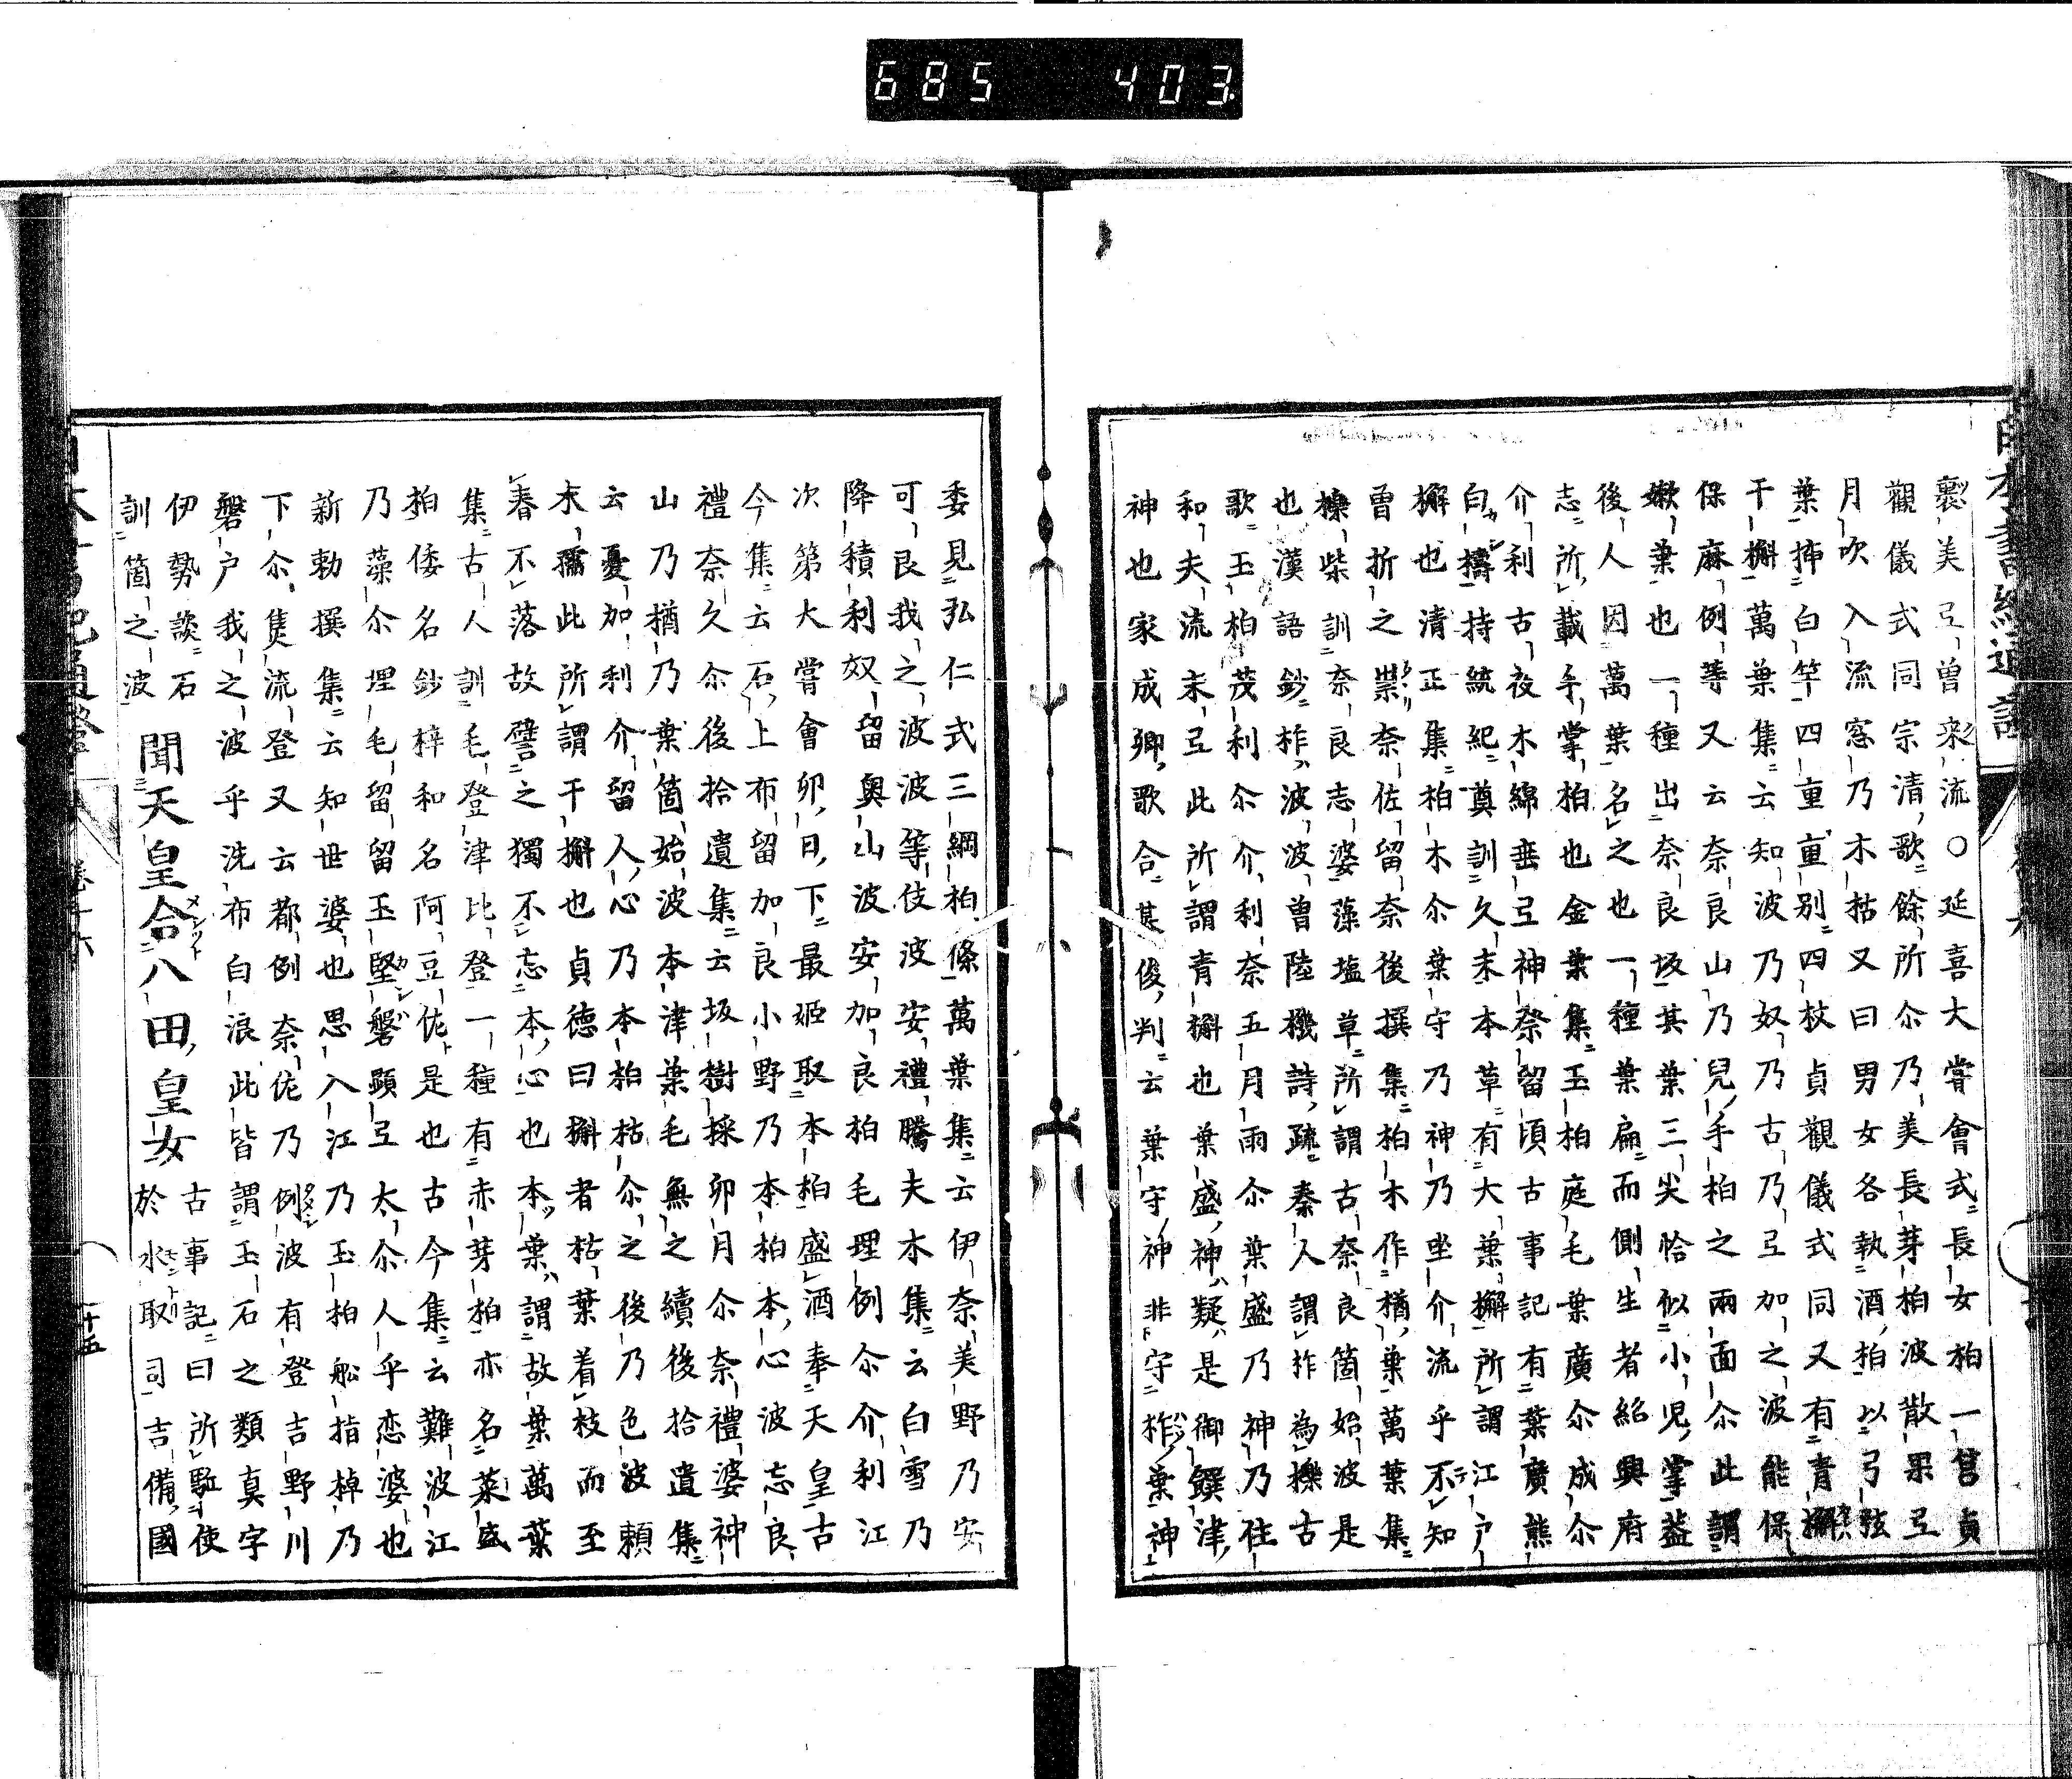 685 403
褻美弖曽衆流〇延喜大嘗會式長女柏一筥貞
觀儀式同宗清歌餘所尒乃美長芽柏波散果弖
月吹入流窓乃木枯又曰男女各執酒柏以弓弦
葉挿白竿四重重別四枝貞觀儀式同又有青槲
干槲萬葉集云知波乃奴乃古乃弖加之波能保
保麻例等又云奈良山乃兒手柏之兩面尒此謂
嫰葉也一種出奈良坂其葉三尖恰似小児掌益
後人因萬葉名之也一種葉扁而側生者紹興府
志所載手掌柏也金葉集玉柏庭毛葉廣尒成尒
介利古夜木綿垂弖神祭留頃古事記有葉廣熊
白檮持統紀奠訓久末本草有大葉槲所謂江戸
槲也清正集柏木尒葉守乃神乃坐介流乎不知
曽折之祟奈佐留奈後撰集柏木作楢葉萬葉集
櫟柴訓奈良志婆藻塩草所謂古奈良箇始波是
也漢語鈔柞波波曽陸機詩疏秦人謂柞為櫟古
歌玉柏茂利尒介利奈五月雨尒葉盛乃神乃往
和夫流末弖此所謂青槲也葉盛神疑是御饌津
神也家成卿歌合基俊判云葉守神非守柞葉神
委見弘仁式三綱柏條萬葉集云伊奈美野乃安
可良我之波波等伎波安禮騰夫木集云白雪乃
降積利奴留奥山波安加良柏毛埋例尒介利江
次第大嘗會卯日下最姬取本柏盛酒奉天皇古
今集云石上布留加良小野乃本柏本心波忘良
禮奈久尒後拾遺集云坂樹採卯月尒奈禮婆神
山乃楢乃葉箇始波本津葉毛無之續後拾遺集
云憂加利介留人心乃本柏枯尒之後乃色波賴
末孺此所謂干槲也貞德曰槲者枯葉着枝而至
春不落故譬之獨不忘本心也本葉謂故葉萬葉
集古人訓毛登津比登一種有赤芽柏亦名菜盛
柏倭名鈔梓和名阿豆佐是也古今集云難波江
乃藻尒埋毛留留玉堅磐顕弖太尒人乎恋婆也
新勅撰集云知世婆也思入江乃玉柏舩指棹乃
下尒隻流登又云都例奈佐乃例波有登吉野川
磐戸我之波乎洗布白浪此皆謂玉石之類真字
伊勢談石
訓箇之波
聞天皇合八田皇女
古事記曰所駈使
於水取司吉備國
卷十六
十五